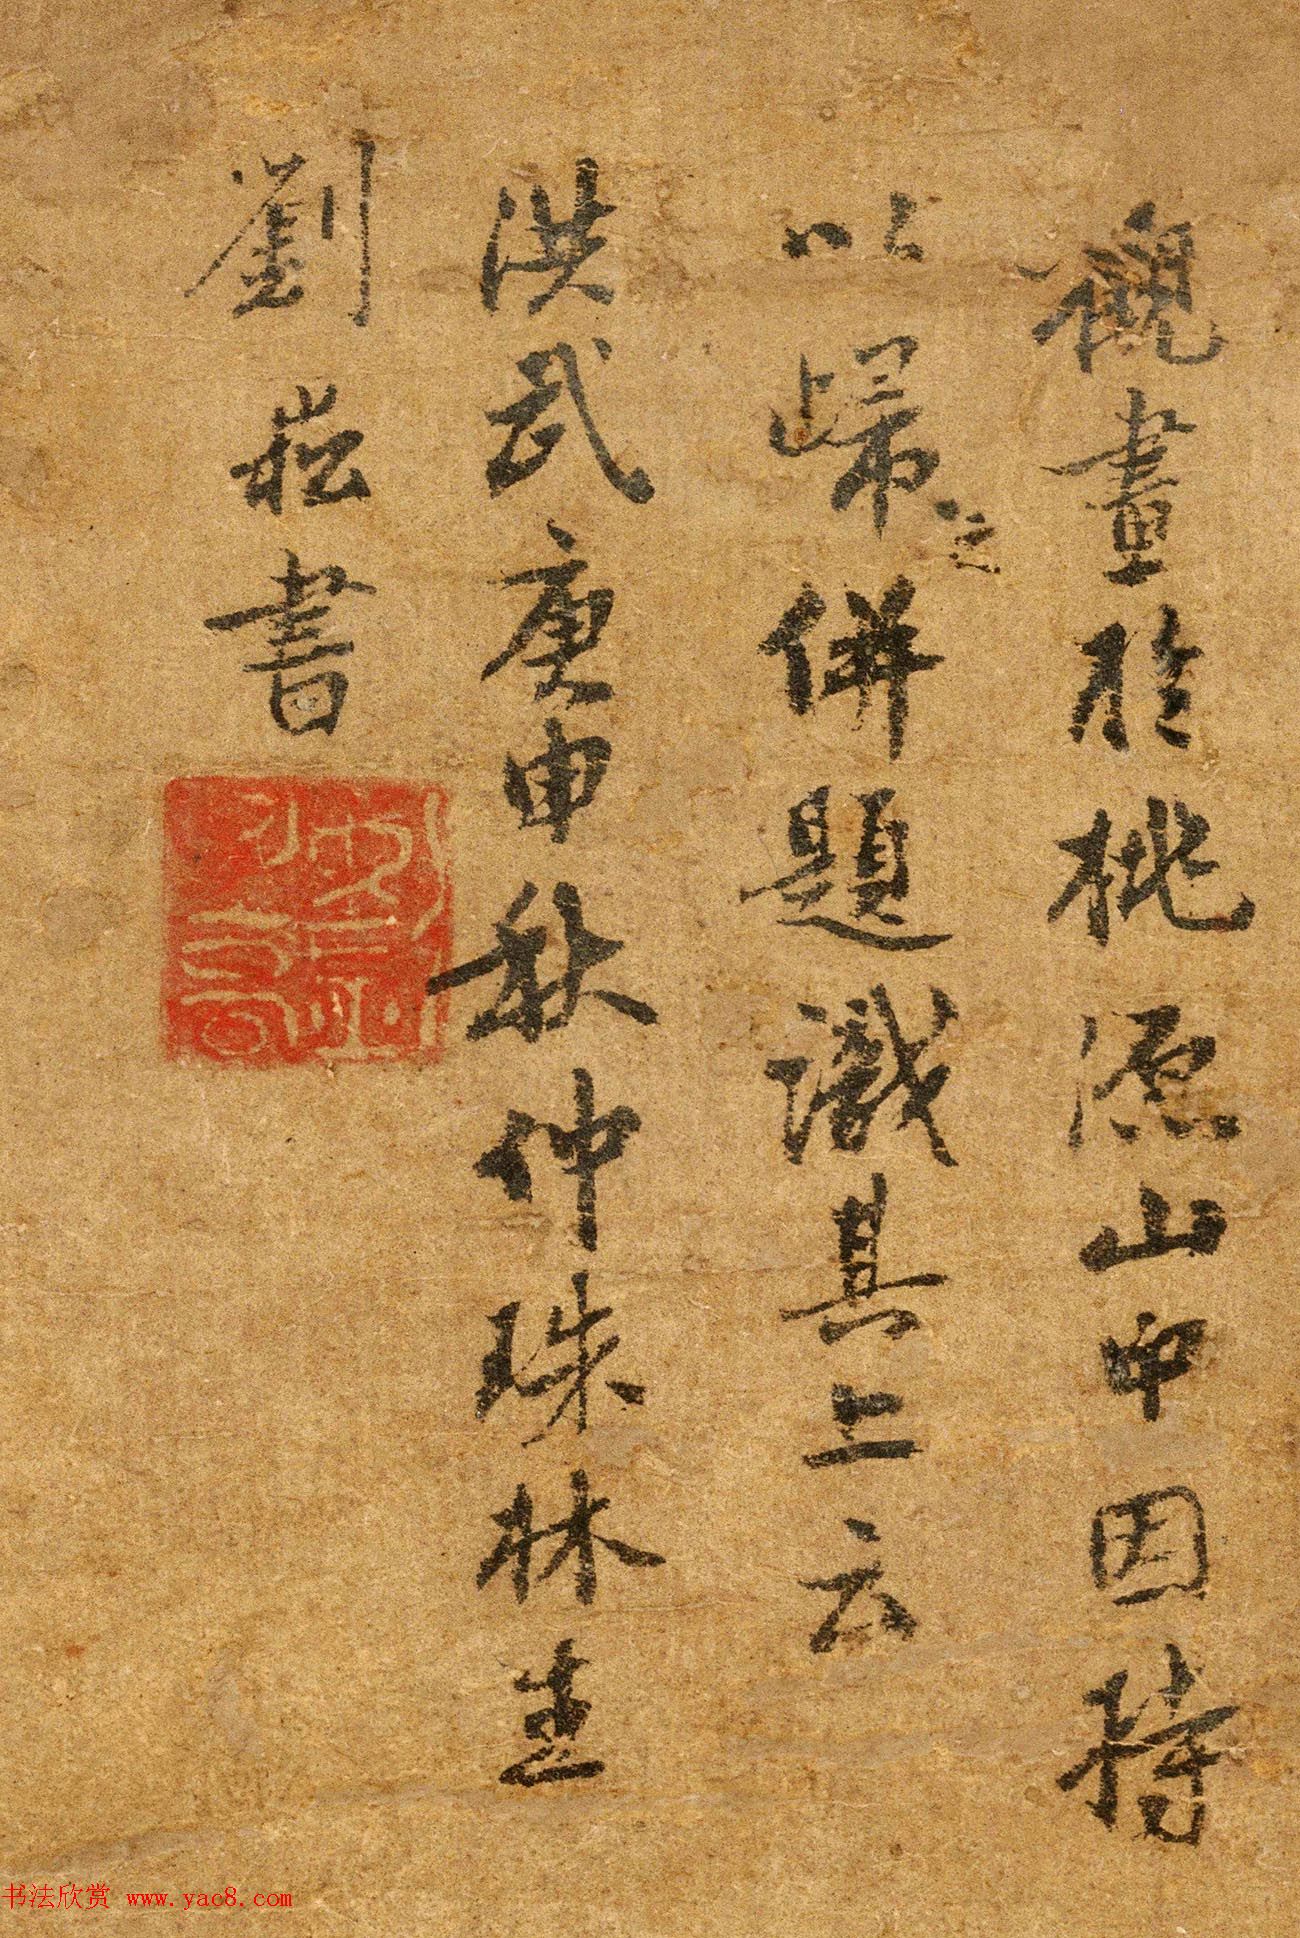 觀畫於桃源山中因持
以歸之併題識其上云
洪武庚申秋仲珠林生
劉崧書
书法欣赏 www.yac8.com